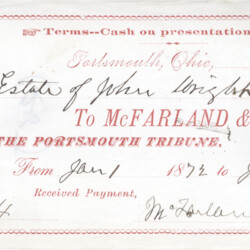 Terms--Cash on presentation
Portsmouth, Ohio,
Estate of John Wright
To McFARLAND &
THE PORTSMOUTH TRIBUNE.
From Jan 1 1872 to J
Received Payment,
McFarlan